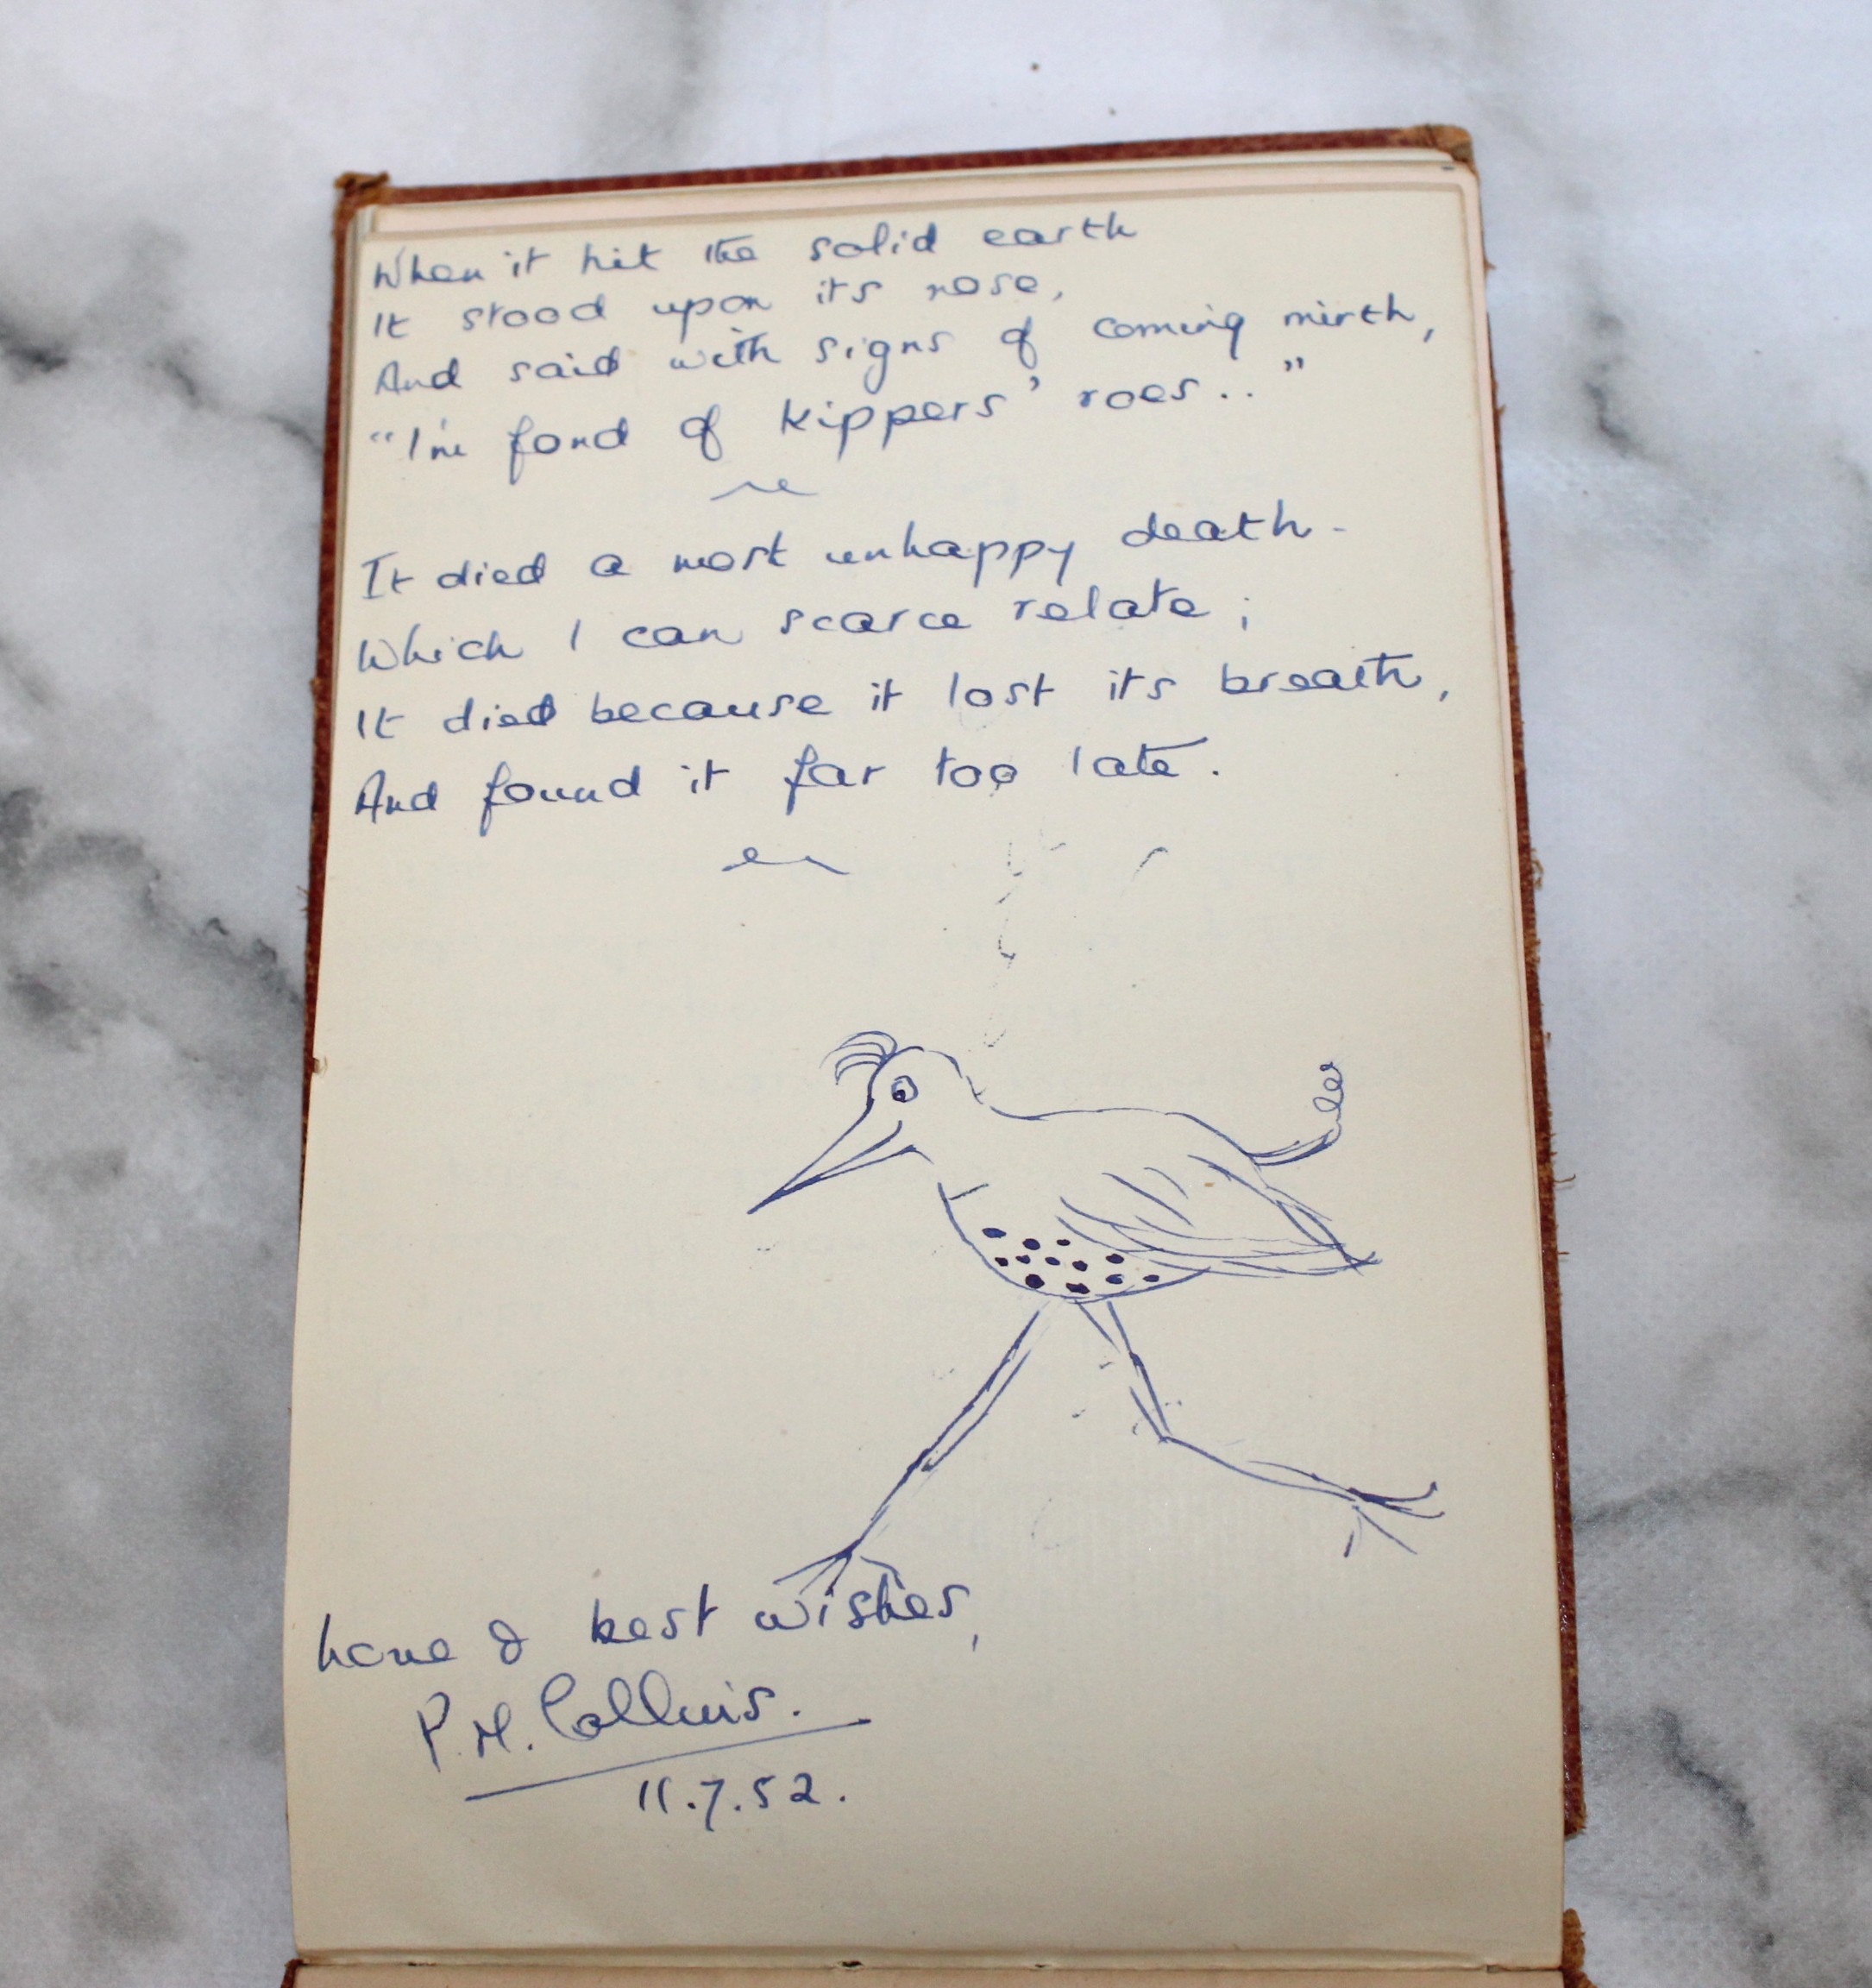 When it hit the solid earth
It stood upon its nose,
And said with signs of coming mirth,
"I'm fond of kippers' roes.."
It died a most unhappy death -
Which I can scarce relate;
It died because it lost its breath,
And found it far too late.
Love & best wishes,
P.M. Collins.
11.7.52.